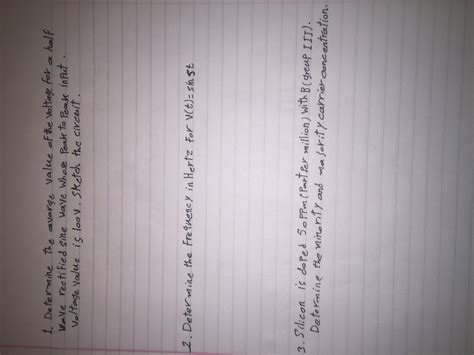 1. Determine the avarge value of the voltage for a half
wave rectified sine wave whose Peak to Peak input
voltage value is 100V. Sketch the circuit.
2. Determine the frequency in Hertz for V(t)= sin 5t
3. Silicon is doped 50ppm (Part Per million) with B (group III).
Determine the minority and majority carrier concentration.